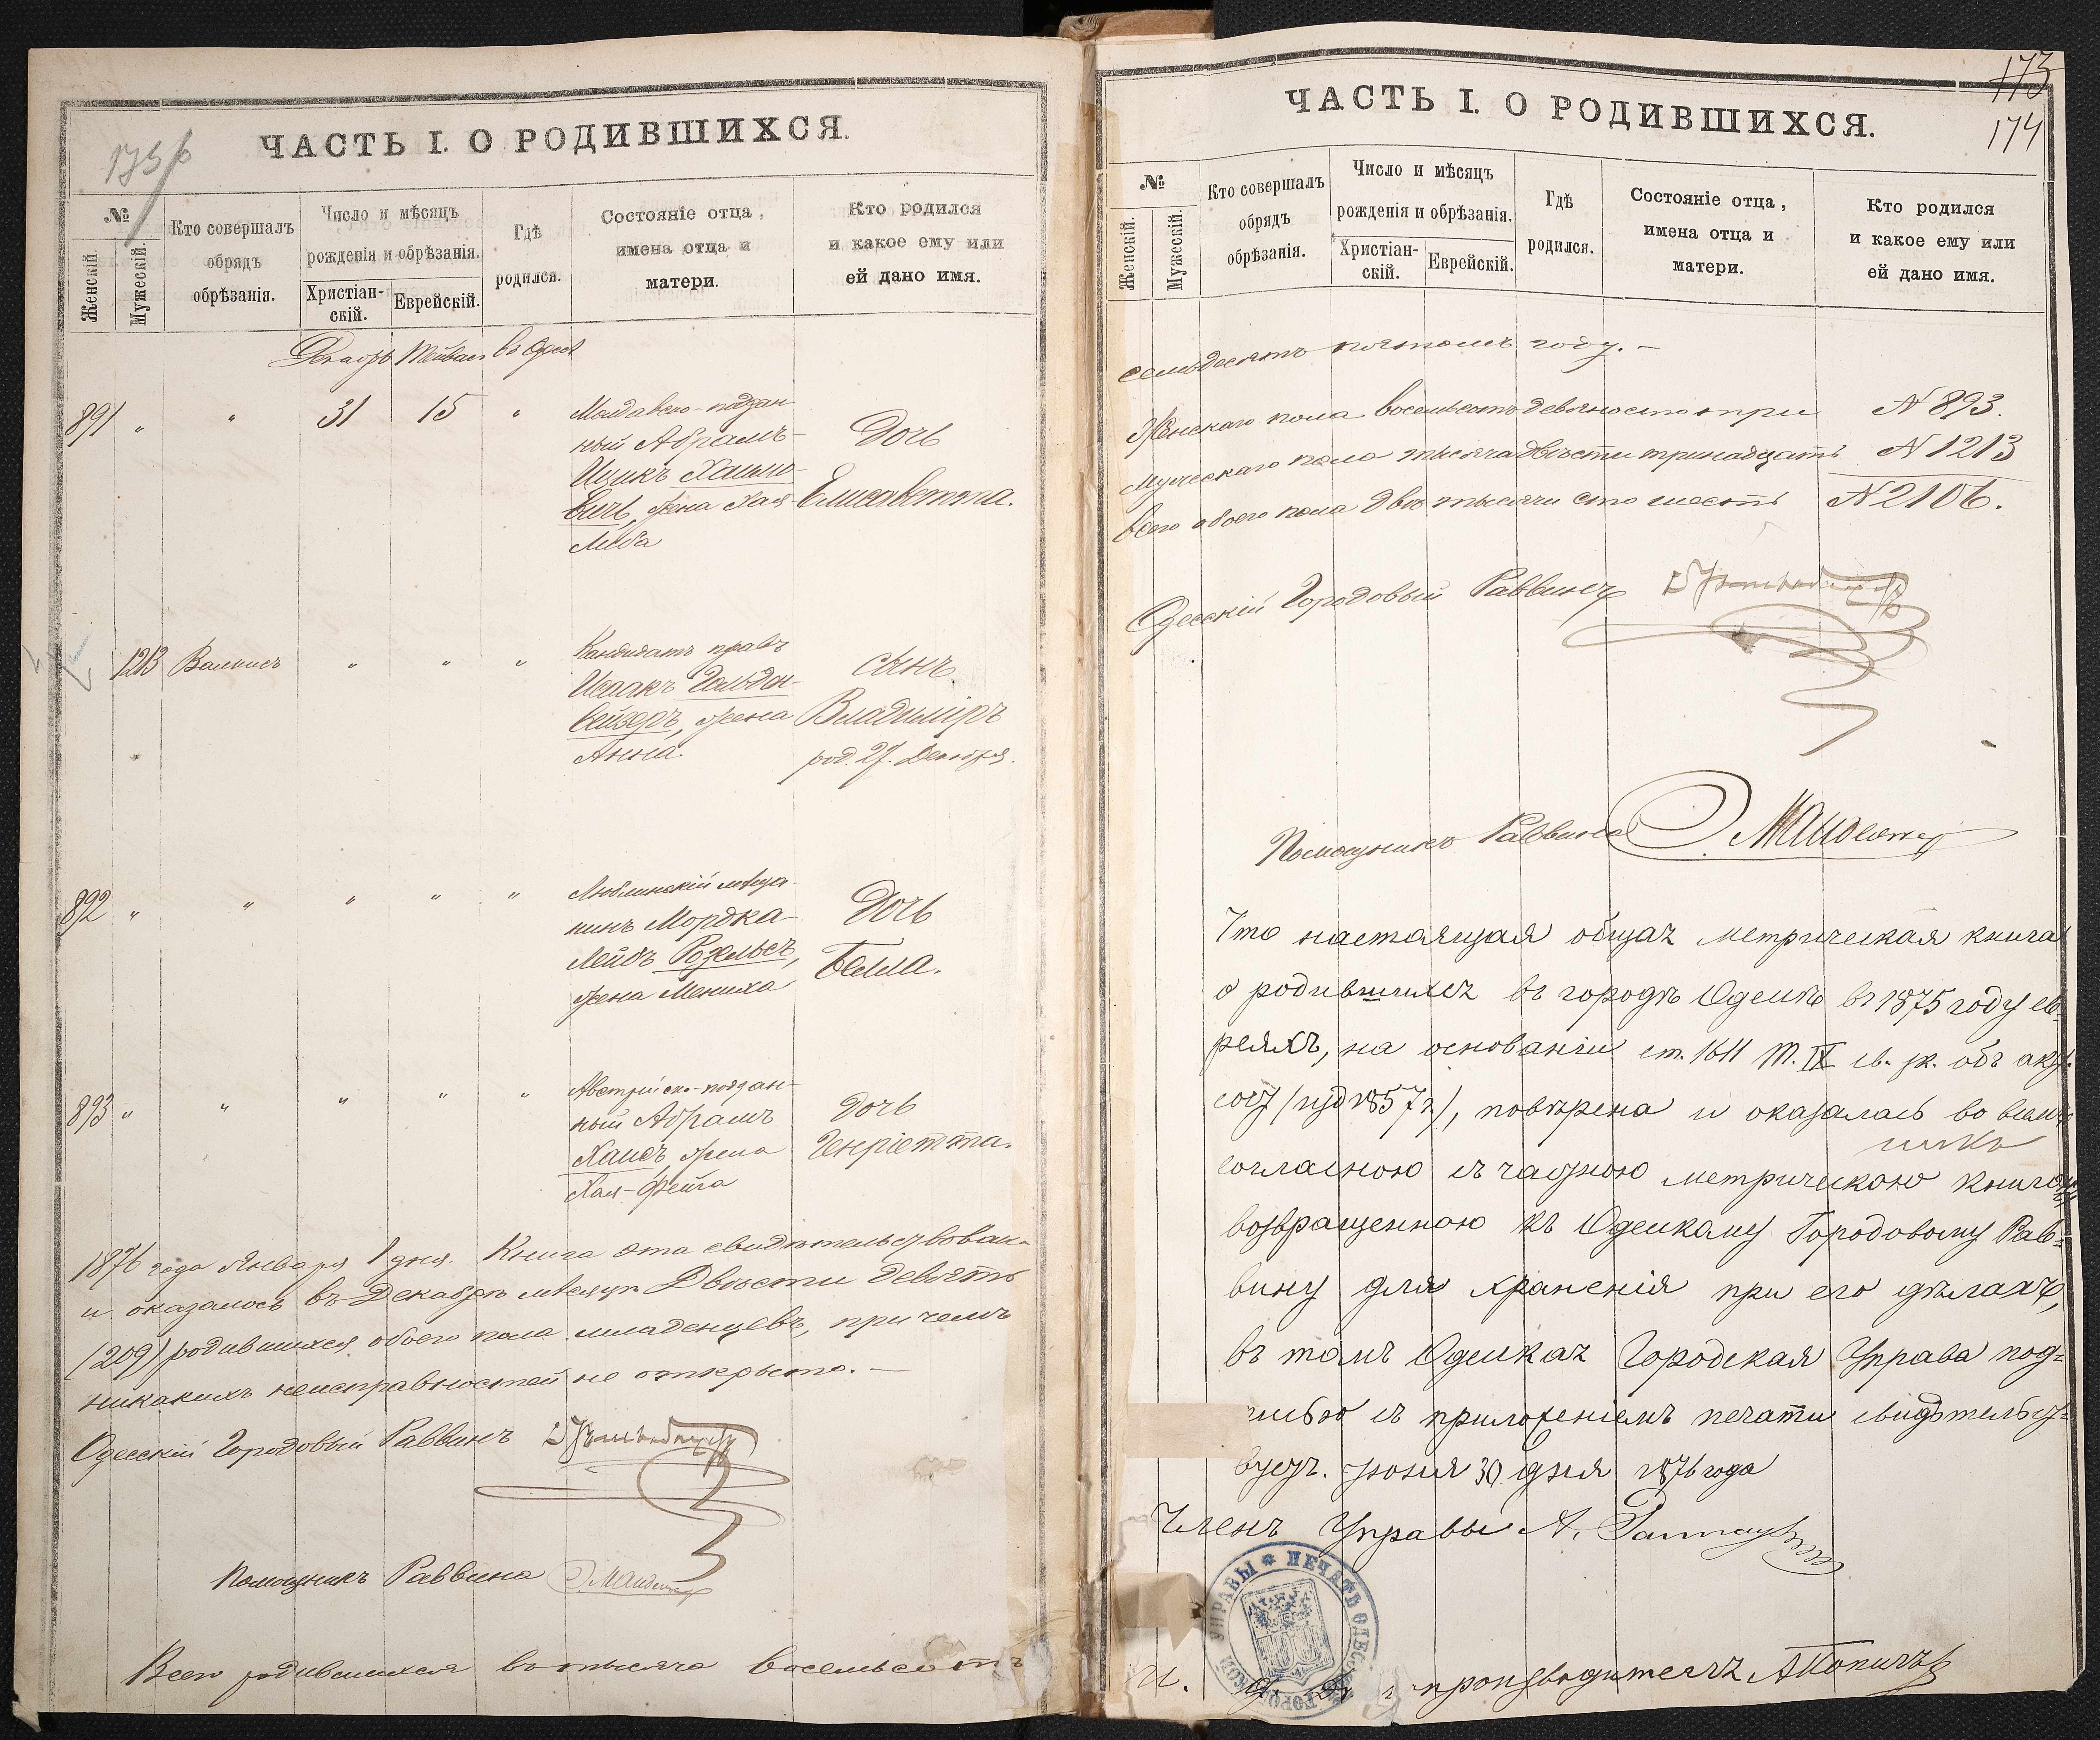 ЧАСТЬ I. О РОДИВШИХСЯ.
№
Женскій.
Мужескій.
Кто совершалъ
обрядъ
обрѣзанія.
Число и мѣсяцъ
рожденія и обрѣзанія.
Христіан-
скій.
Еврейскій.
Гдѣ
родился.
Состояніе отца,
имена отца и
матери.
Кто родился
и какое ему или
ей дано имя.
Декабрь Тейвас въ Одесс
891 " " 31 15 "
Молдавско-поддан-
ный Абрамъ-
Ицикъ Хаимо-
вичъ, жена Хая
Либа
Дочь
Елисаветта.
1213 " " "
Кандидатъ правъ
Исаакъ Гольден-
вейзеръ, жена
Анна.
сынъ
Владиміръ
род. 27. Декабря.
892 " " " " "
Люблинскій мѣща-
нинъ Мордка-
Лейбъ
жена Мениха
Дочь
Белла.
893 " " " " "
Австрійско-поддан-
ный Абрамъ
жена
Хая-Фейга
Дочь
Генріетта.
1876 года Января 1 дня. Книга эта свидѣтельствован-
и оказалось въ Декабрѣ мѣсяцѣ Двѣсти девять
(209) родившихся обоего пола младенцевъ, при чемъ
никакихъ неисправностей не открыто. —
Одесскій Городовый Раввинъ
Помощникъ Раввина
Всего родившихся въ тысяча восемьсотъ
173
174
ЧАСТЬ I. О РОДИВШИХСЯ.
№
Женскій.
Мужескій.
Кто совершалъ
обрядъ
обрѣзанія.
Число и мѣсяцъ
рожденія и обрѣзанія.
Христіан-
скій.
Еврейскій.
Гдѣ
родился.
Состояніе отца,
имена отца и
матери.
Кто родился
и какое ему или
ей дано имя.
семьдесятъ пятомъ году. —
Женскаго пола восемьсотъ девяносто три № 893.
Мужескаго пола тысяча двѣсти тринадцать № 1213
Всего обоего пола двѣ тысячи сто шесть № 2106.
Одесскій Городовый Раввинъ
Помощникъ Раввина
Что настоящая общая метрическая книга
о родившихся въ городѣ Одессѣ въ 1875 году ев-
реяхъ, на основаніи ст. 1611 т. IX св. зак. объ
сост (изд 1857 г.), повѣрена и оказалась во всемъ
согласною съ частною метрическою книгою
возвращенною къ Одесскому Городовому Рав-
вину для храненія при его дѣлахъ,
въ томъ Одесская Городская Управа под-
писью съ приложеніемъ печати свидѣтельст-
вуетъ. Іюня 30 дня 1876 года
Членъ Управы А.
ПЕЧАТЬ ОДЕССКОЙ ГОРОДСКОЙ УПРАВЫ
И. производителя